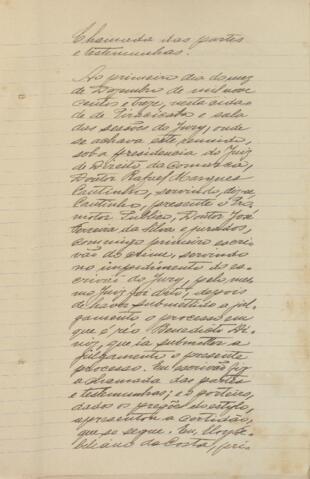 Chamada das partes
e testemunhas.
Ao primeiro dia do mez
de Dezembro de mil nove
centos e treze, nesta cida
de de Piracicaba e sala
das sessões do Jury, onde
se achava este reunido,
sob a presidencia do Juiz
de Direito da Comarca,
Doutor Rafael Marques
Cantinho, servindo, digo,
Cantinho, presente o Pro
motor Publico, Doutor José
Ferreira da Silva e jurados,
commigo primeiro escri
vão do crime, servindo
no impedimento do es
crivão do Jury, pelo mes
mo Juiz foi dito, depois
de haver submettido a jul
gamento o processo em
que é réo Benedicto Di
niz, que ia submetter a
julgamento o presente
processo. Eu escrivão fiz
a chamada das partes
e testemunhas; e o porteiro,
dados os pregões do estylo,
apresentou a certidão,
que se segue. Eu,
da Costa, pri